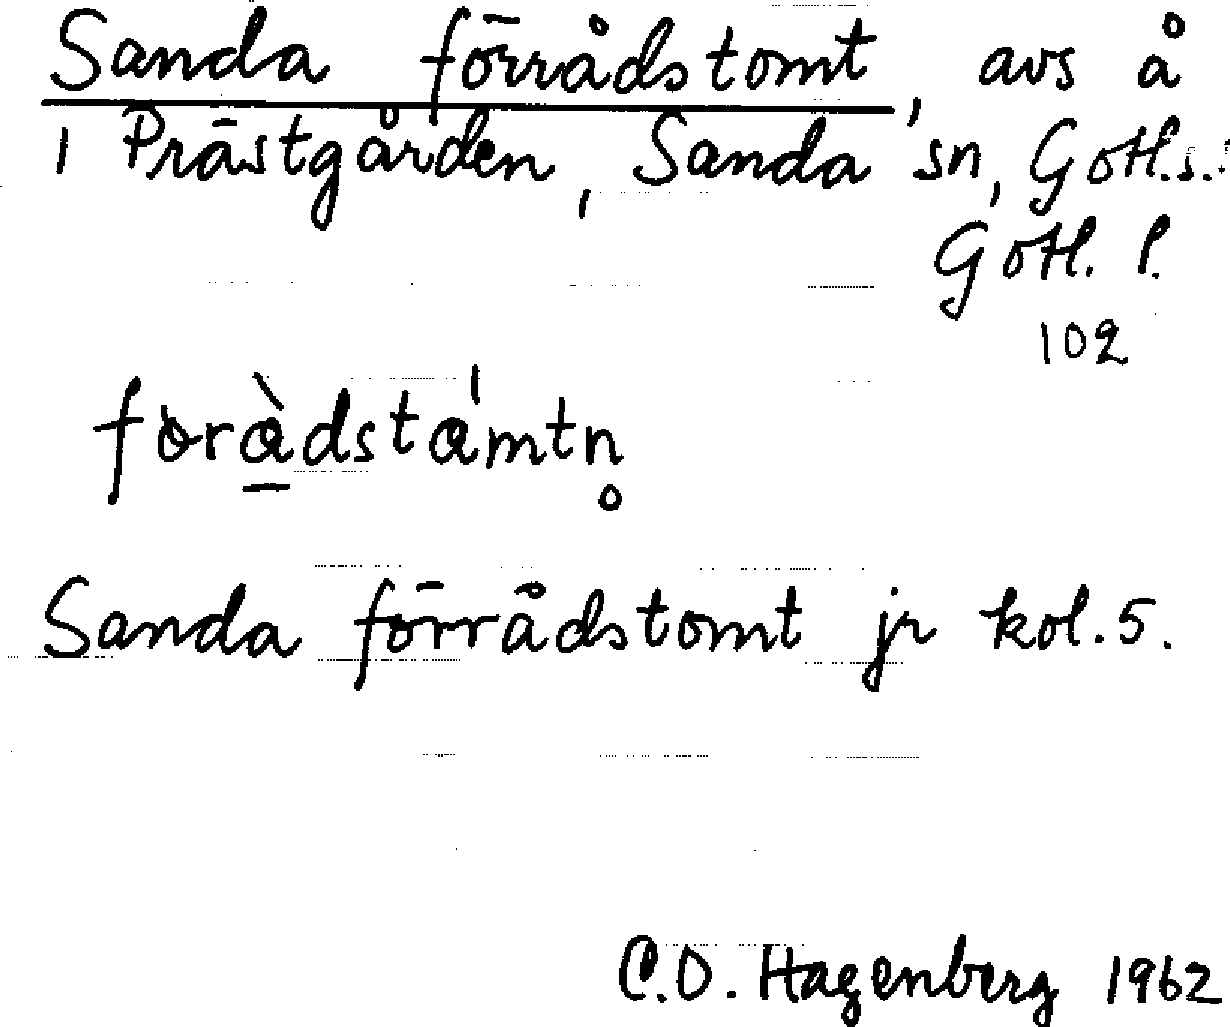 Sanda förrådstomt, avs å
1 Prästgården, Sanda sn, Gotl.s.
Gotl. l.
102
foràdstámtn̥
Sanda förrådstomt jr kol. 5.
C.O. Hagenberg 1962